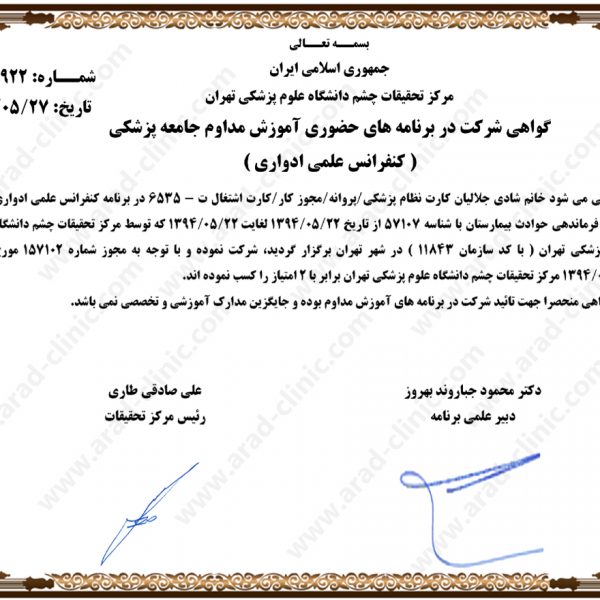 بسمـــه تعـــالی
جمهوری اسلامی ایران
مرکز تحقیقات چشم دانشگاه علوم پزشکی تهران
شمـــاره: ۹۲۲
تاریخ: ۰۵/۲۷/
گواهی شرکت در برنامه های حضوری آموزش مداوم جامعه پزشکی
( کنفرانس علمی ادواری )
می شود خانم شادی جلالیان کارت نظام پزشکی/پروانه/مجوز کار/کارت اشتغال ت – ۶۵۳۵ در برنامه کنفرانس علمی ادواری
فرماندهی حوادث بیمارستان با شناسه ۵۷۱۰۷ از تاریخ ۱۳۹۴/۰۵/۲۲ لغایت ۱۳۹۴/۰۵/۲۲ که توسط مرکز تحقیقات چشم دانشگاه
پزشکی تهران ( با کد سازمان ۱۱۸۴۳ ) در شهر تهران برگزار گردید، شرکت نموده و با توجه به مجوز شماره ۱۵۷۱۰۲ مورخ
۱۳۹۴/۰ مرکز تحقیقات چشم دانشگاه علوم پزشکی تهران برابر با ۲ امتیاز را کسب نموده اند.
منحصرا جهت تائید شرکت در برنامه های آموزش مداوم بوده و جایگزین مدارک آموزشی و تخصصی نمی باشد.
دکتر محمود جباروند بهروز
دبیر علمی برنامه
علی صادقی طاری
رئیس مرکز تحقیقات
www.arad-clinic.com